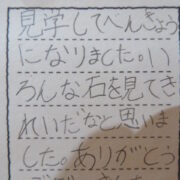 見学してべんきょう
になりました。い
ろんな石を見てき
れいだなと思いま
した。ありがとう
ございました